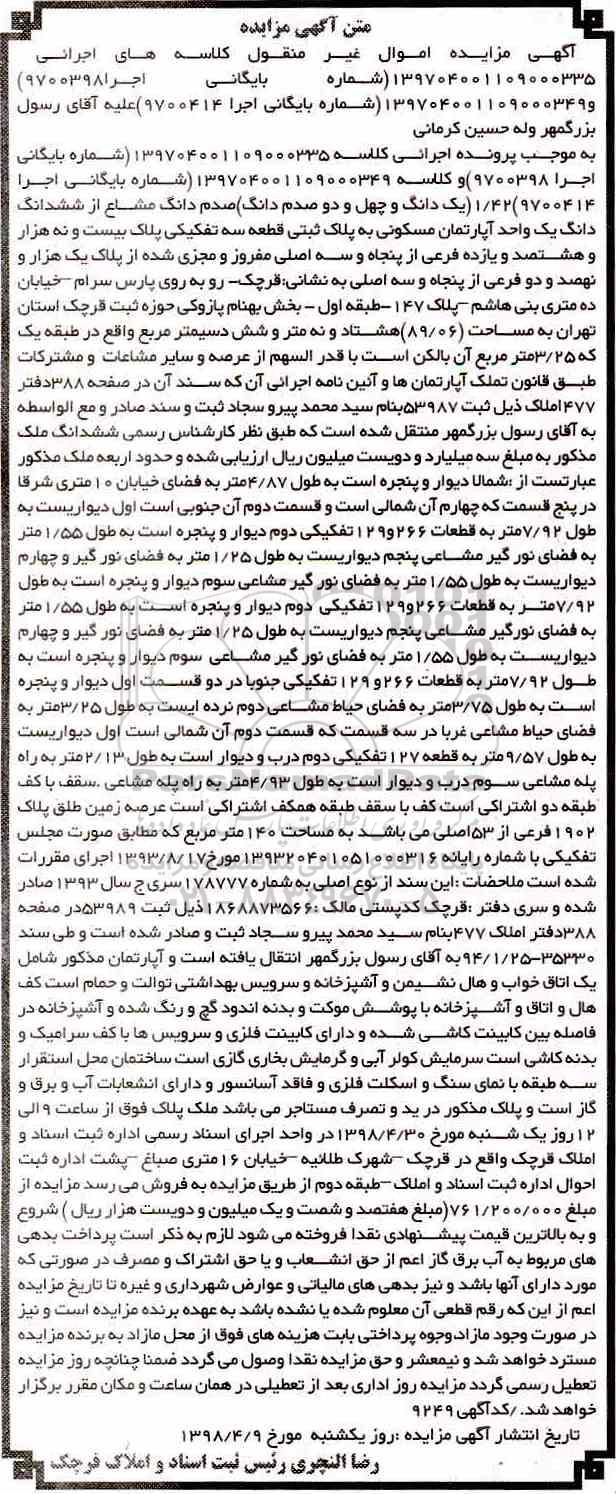 متن آگهی مزایده
آگهی مزایده اموال غیر منقول کلاسه های اجرائی
۱۳۹۷۰۴۰۰۱۱۰۹۰۰۰۳۳۵(شماره بایگانی اجرا۹۷۰۰۳۹۸)
و۱۳۹۷۰۴۰۰۱۱۰۹۰۰۰۳۴۹(شماره بایگانی اجرا ۹۷۰۰۴۱۴)علیه آقای رسول
بزرگمهر وله حسین کرمانی
به موجب پرونده اجرائی کلاسه ۱۳۹۷۰۴۰۰۱۱۰۹۰۰۰۳۳۵ (شماره بایگانی
اجرا ۹۷۰۰۳۹۸)و کلاسه ۱۳۹۷۰۴۰۰۱۱۰۹۰۰۰۳۴۹(شماره بایگانی اجرا
۹۷۰۰۴۱۴)۱/۴۲(یک دانگ و چهل و دو صدم دانگ)صدم دانگ مشاع از ششدانگ
دانگ یک واحد آپارتمان مسکونی به پلاک ثبتی قطعه سه تفکیکی پلاک بیست و نه هزار
و هشتصد و یازده فرعی از پنجاه و سه اصلی مفروز و مجزی شده از پلاک یک هزار و
نهصد و دو فرعی از پنجاه و سه اصلی به نشانی:قرچک- رو به روی پارس سرام –خیابان
ده متری بنی هاشم –پلاک ۱۴۷-طبقه اول – بخش بهنام پازوکی حوزه ثبت قرچک استان
تهران به مساحت (۸۹/۰۶)هشتاد و نه متر و شش دسیمتر مربع واقع در طبقه یک
که ۳/۲۵متر مربع آن بالکن است با قدر السهم از عرصه و سایر مشاعات و مشترکات
طبق قانون تملک آپارتمان ها و آئین نامه اجرائی آن که سند آن در صفحه ۳۸۸دفتر
۴۷۷املاک ذیل ثبت ۵۳۹۸۷بنام سید محمد پیرو سجاد ثبت و سند صادر و مع الواسطه
به آقای رسول بزرگمهر منتقل شده است که طبق نظر کارشناس رسمی ششدانگ ملک
مذکور به مبلغ سه میلیارد و دویست میلیون ریال ارزیابی شده و حدود اربعه ملک مذکور
عبارتست از :شمالا دیوار و پنجره است به طول ۴/۸۷متر به فضای خیابان ۱۰متری شرقا
در پنج قسمت که چهارم آن شمالی است و قسمت دوم آن جنوبی است اول دیواریست به
طول ۷/۹۲متر به قطعات ۲۶۶و۱۲۹تفکیکی دوم دیوار و پنجره است به طول ۱/۵۵متر
به فضای نور گیر مشاعی پنجم دیواریست به طول ۱/۲۵متر به فضای نور گیر و چهارم
دیواریست به طول ۱/۵۵متر به فضای نور گیر مشاعی سوم دیوار و پنجره است به طول
۷/۹۲متر به قطعات ۲۶۶و۱۲۹تفکیکی دوم دیوار و پنجره است به طول ۱/۵۵متر
به فضای نورگیر مشاعی پنجم دیواریست به طول ۱/۲۵متر به فضای نور گیر و چهارم
دیواریست به طول ۱/۵۵متر به فضای نور گیر مشاعی سوم دیوار و پنجره است به
طول ۷/۹۲متر به قطعات ۲۶۶و ۱۲۹تفکیکی جنوبا در دو قسمت اول دیوار و پنجره
است به طول ۳/۷۵متر به فضای حیاط مشاعی دوم نرده ایست به طول ۳/۲۵متر به
فضای حیاط مشاعی غربا در سه قسمت که قسمت دوم آن شمالی است اول دیواریست
به طول ۹/۵۷متر به قطعه ۱۲۷تفکیکی دوم درب و دیوار است به طول ۲/۱۳متر به راه
پله مشاعی سوم درب و دیوار است به طول ۴/۹۳متر به راه پله مشاعی .سقف با کف
طبقه دو اشتراکی است کف با سقف طبقه همکف اشتراکی است عرصه زمین طلق پلاک
۱۹۰۲فرعی از ۵۳اصلی می باشد به مساحت ۱۴۰متر مربع که مطابق صورت مجلس
تفکیکی با شماره رایانه ۱۳۹۳۲۰۴۰۱۰۵۱۰۰۰۳۱۶مورخ۱۳۹۳/۸/۱۷اجرای مقررات
شده است ملاحضات :این سند از نوع اصلی به شماره ۱۷۸۷۷۷سری ج سال ۱۳۹۳صادر
شده و سری دفتر :قرچک کدپستی مالک :۱۸۶۸۸۷۳۵۶۶ذیل ثبت ۵۳۹۸۹در صفحه
۳۸۸دفتر املاک ۴۷۷بنام سید محمد پیرو سجاد ثبت و صادر شده است و طی سند
۳۵۳۳۰-۹۴/۱/۲۵به آقای رسول بزرگمهر انتقال یافته است و آپارتمان مذکور شامل
یک اتاق خواب و هال نشیمن و آشپزخانه و سرویس بهداشتی توالت و حمام است کف
هال و اتاق و آشپزخانه با پوشش موکت و بدنه اندود گچ و رنگ شده و آشپزخانه در
فاصله بین کابینت کاشی شده و دارای کابینت فلزی و سرویس ها با کف سرامیک و
بدنه کاشی است سرمایش کولر آبی و گرمایش بخاری گازی است ساختمان محل استقرار
سه طبقه با نمای سنگ و اسکلت فلزی و فاقد آسانسور و دارای انشعابات آب و برق و
گاز است و پلاک مذکور در ید و تصرف مستاجر می باشد ملک پلاک فوق از ساعت ۹الی
۱۲روز یک شنبه مورخ ۱۳۹۸/۴/۳۰در واحد اجرای اسناد رسمی اداره ثبت اسناد و
املاک قرچک واقع در قرچک –شهرک طلائیه –خیابان ۱۶متری صباغ –پشت اداره ثبت
احوال اداره ثبت اسناد و املاک –طبقه دوم از طریق مزایده به فروش می رسد مزایده از
مبلغ ۷۶۱/۲۰۰/۰۰۰(مبلغ هفتصد و شصت و یک میلیون و دویست هزار ریال ) شروع
و به بالاترین قیمت پیشنهادی نقدا فروخته می شود لازم به ذکر است پرداخت بدهی
های مربوط به آب برق گاز اعم از حق انشعاب و یا حق اشتراک و مصرف در صورتی که
مورد دارای آنها باشد و نیز بدهی های مالیاتی و عوارض شهرداری و غیره تا تاریخ مزایده
اعم از این که رقم قطعی آن معلوم شده یا نشده باشد به عهده برنده مزایده است و نیز
در صورت وجود مازاد،وجوه پرداختی بابت هزینه های فوق از محل مازاد به برنده مزایده
مسترد خواهد شد و نیمعشر و حق مزایده نقدا وصول می گردد ضمنا چنانچه روز مزایده
تعطیل رسمی گردد مزایده روز اداری بعد از تعطیلی در همان ساعت و مکان مقرر برگزار
خواهد شد. /کدآگهی ۹۲۴۹
تاریخ انتشار آگهی مزایده :روز یکشنبه مورخ ۱۳۹۸/۴/۹
رضا النچری رئیس ثبت اسناد و املاک قرچک
ParsNamadData
۰۲۱-۸۸۳۴۹۶۷۰-۵